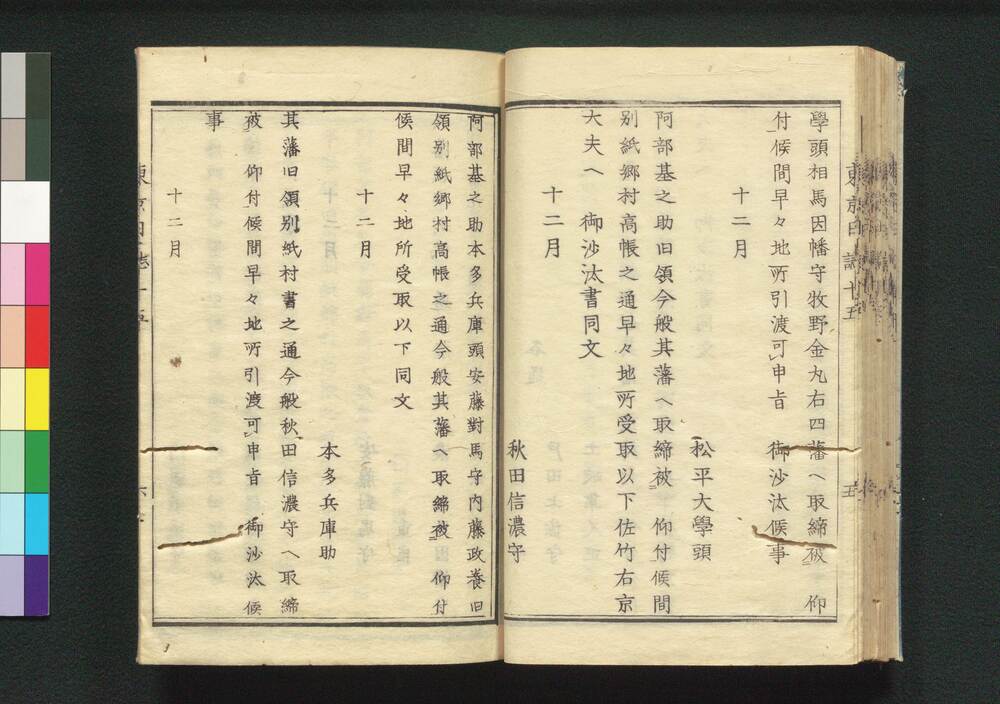 學頭相馬因幡守牧野金丸右四藩へ取締被　仰
付候間早々地所引渡可申旨　御沙汰候事
十二月
松平大學頭
阿部基之助旧領今般其藩へ取締被　仰付候間
別紙郷村高帳之通早々地所受取以下佐竹右京
大夫へ　御沙汰書同文
十二月
秋田信濃守
阿部基之助本多兵庫頭安藤對馬守内藤政養旧
領別紙郷村高帳之通今般其藩へ取締被　仰付
候間早々地所受取以下同文
十二月
本多兵庫助
其藩旧領別紙村書之通今般秋田信濃守へ取締
被　仰付候間早々地所引渡可申旨　御沙汰候
事
十二月
東京日誌十五
五
六